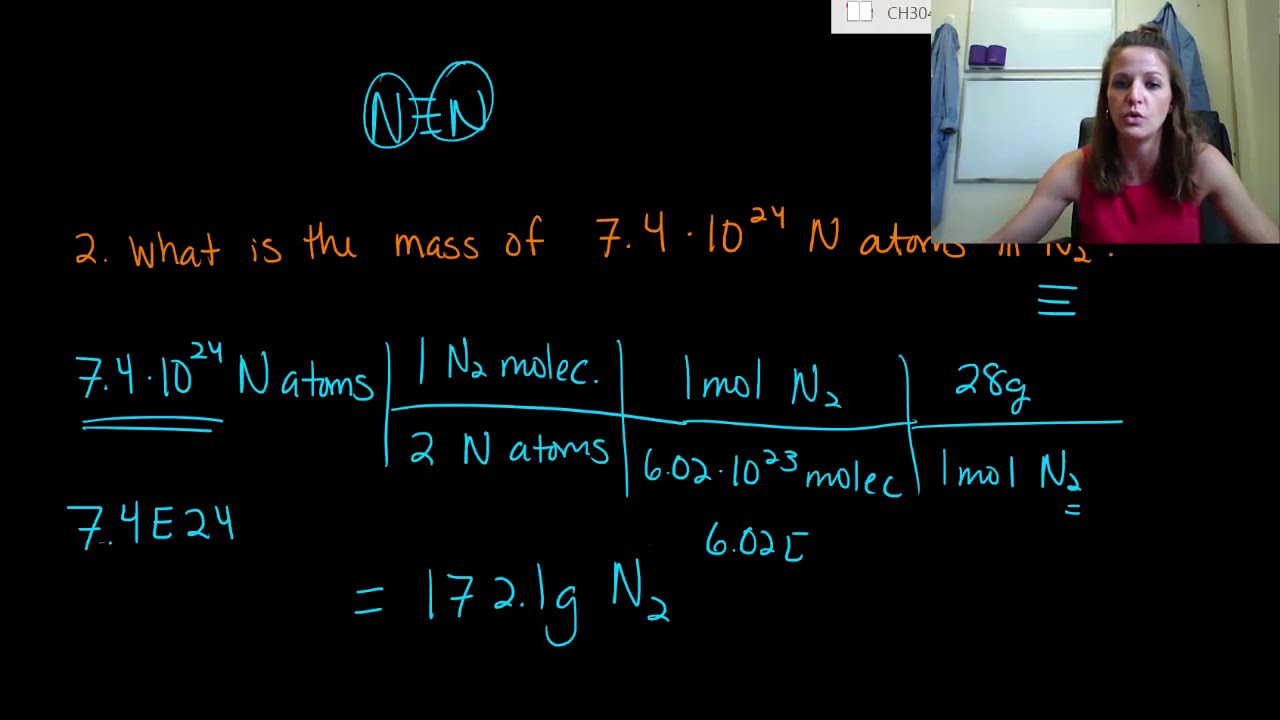 CH304
N≡N
2. What is the mass of 7.4·10²⁴ N atoms in N₂?
7.4·10²⁴ N atoms | 1 N₂ molec. | 1 mol N₂ | 28g
2 N atoms | 6.02·10²³ molec | 1 mol N₂
7.4E24
6.02E
= 172.1g N₂